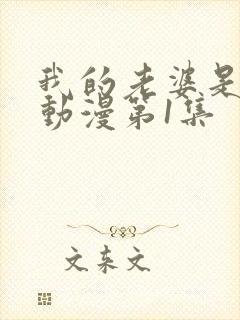 我的老婆是
動漫第1集
文东文